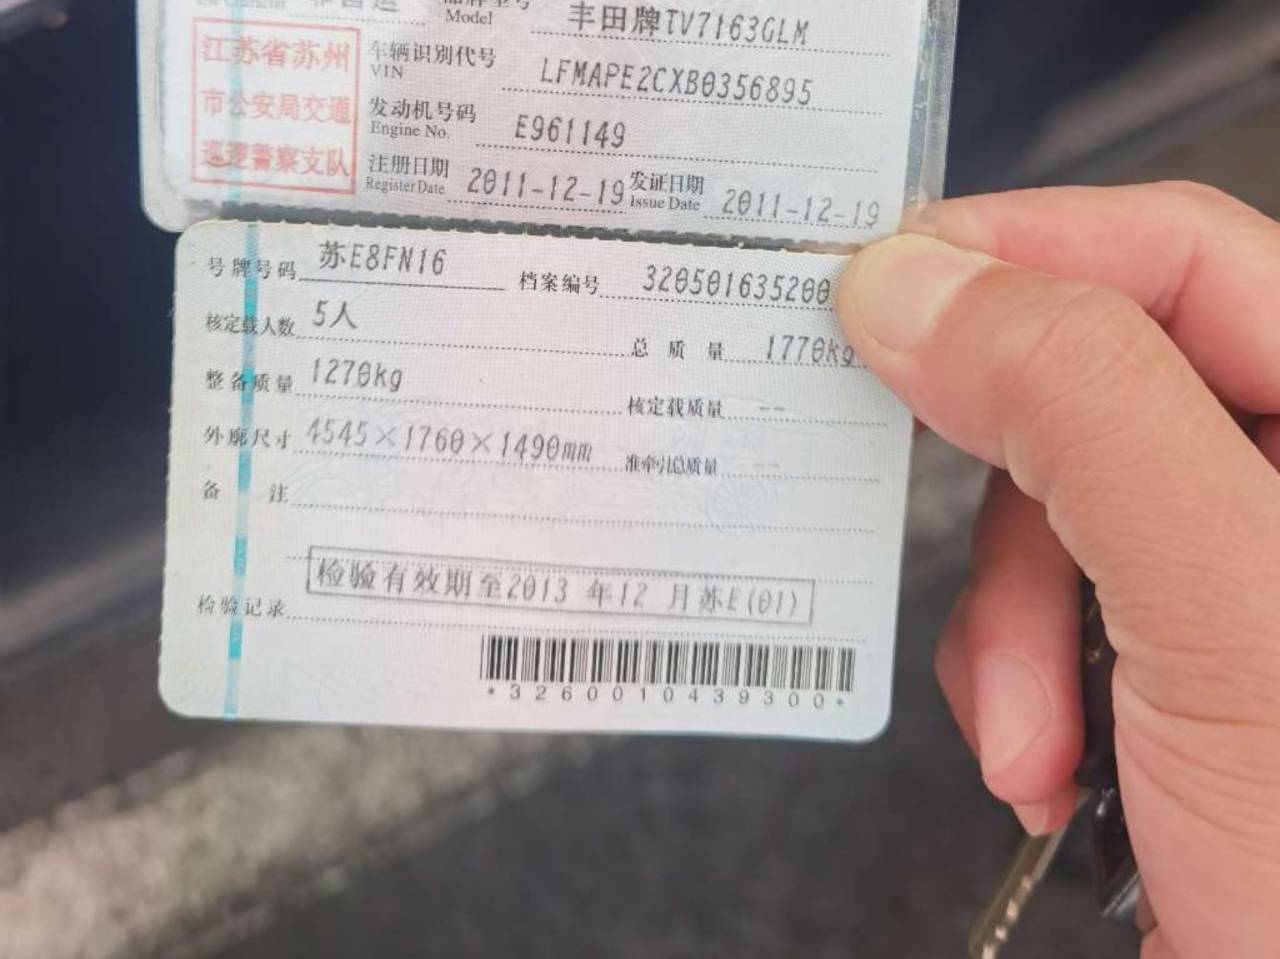 Use Character 非营运 品牌型号 Model 丰田牌TV7163GLM
江苏省苏州
市公安局交通
巡逻警察支队
车辆识别代号 VIN LFMAPE2CXB0356895
发动机号码 Engine No. E961149
注册日期 Register Date 2011-12-19 发证日期 Issue Date 2011-12-19
号牌号码 苏E8FN16 档案编号 320501635200
核定载人数 5人 总质量 1770kg
整备质量 1270kg 核定载质量 --
外廓尺寸 4545×1760×1490mm 准牵引总质量 --
备注
检验有效期至2013年12月苏E(01)
检验记录
*3260010439300*